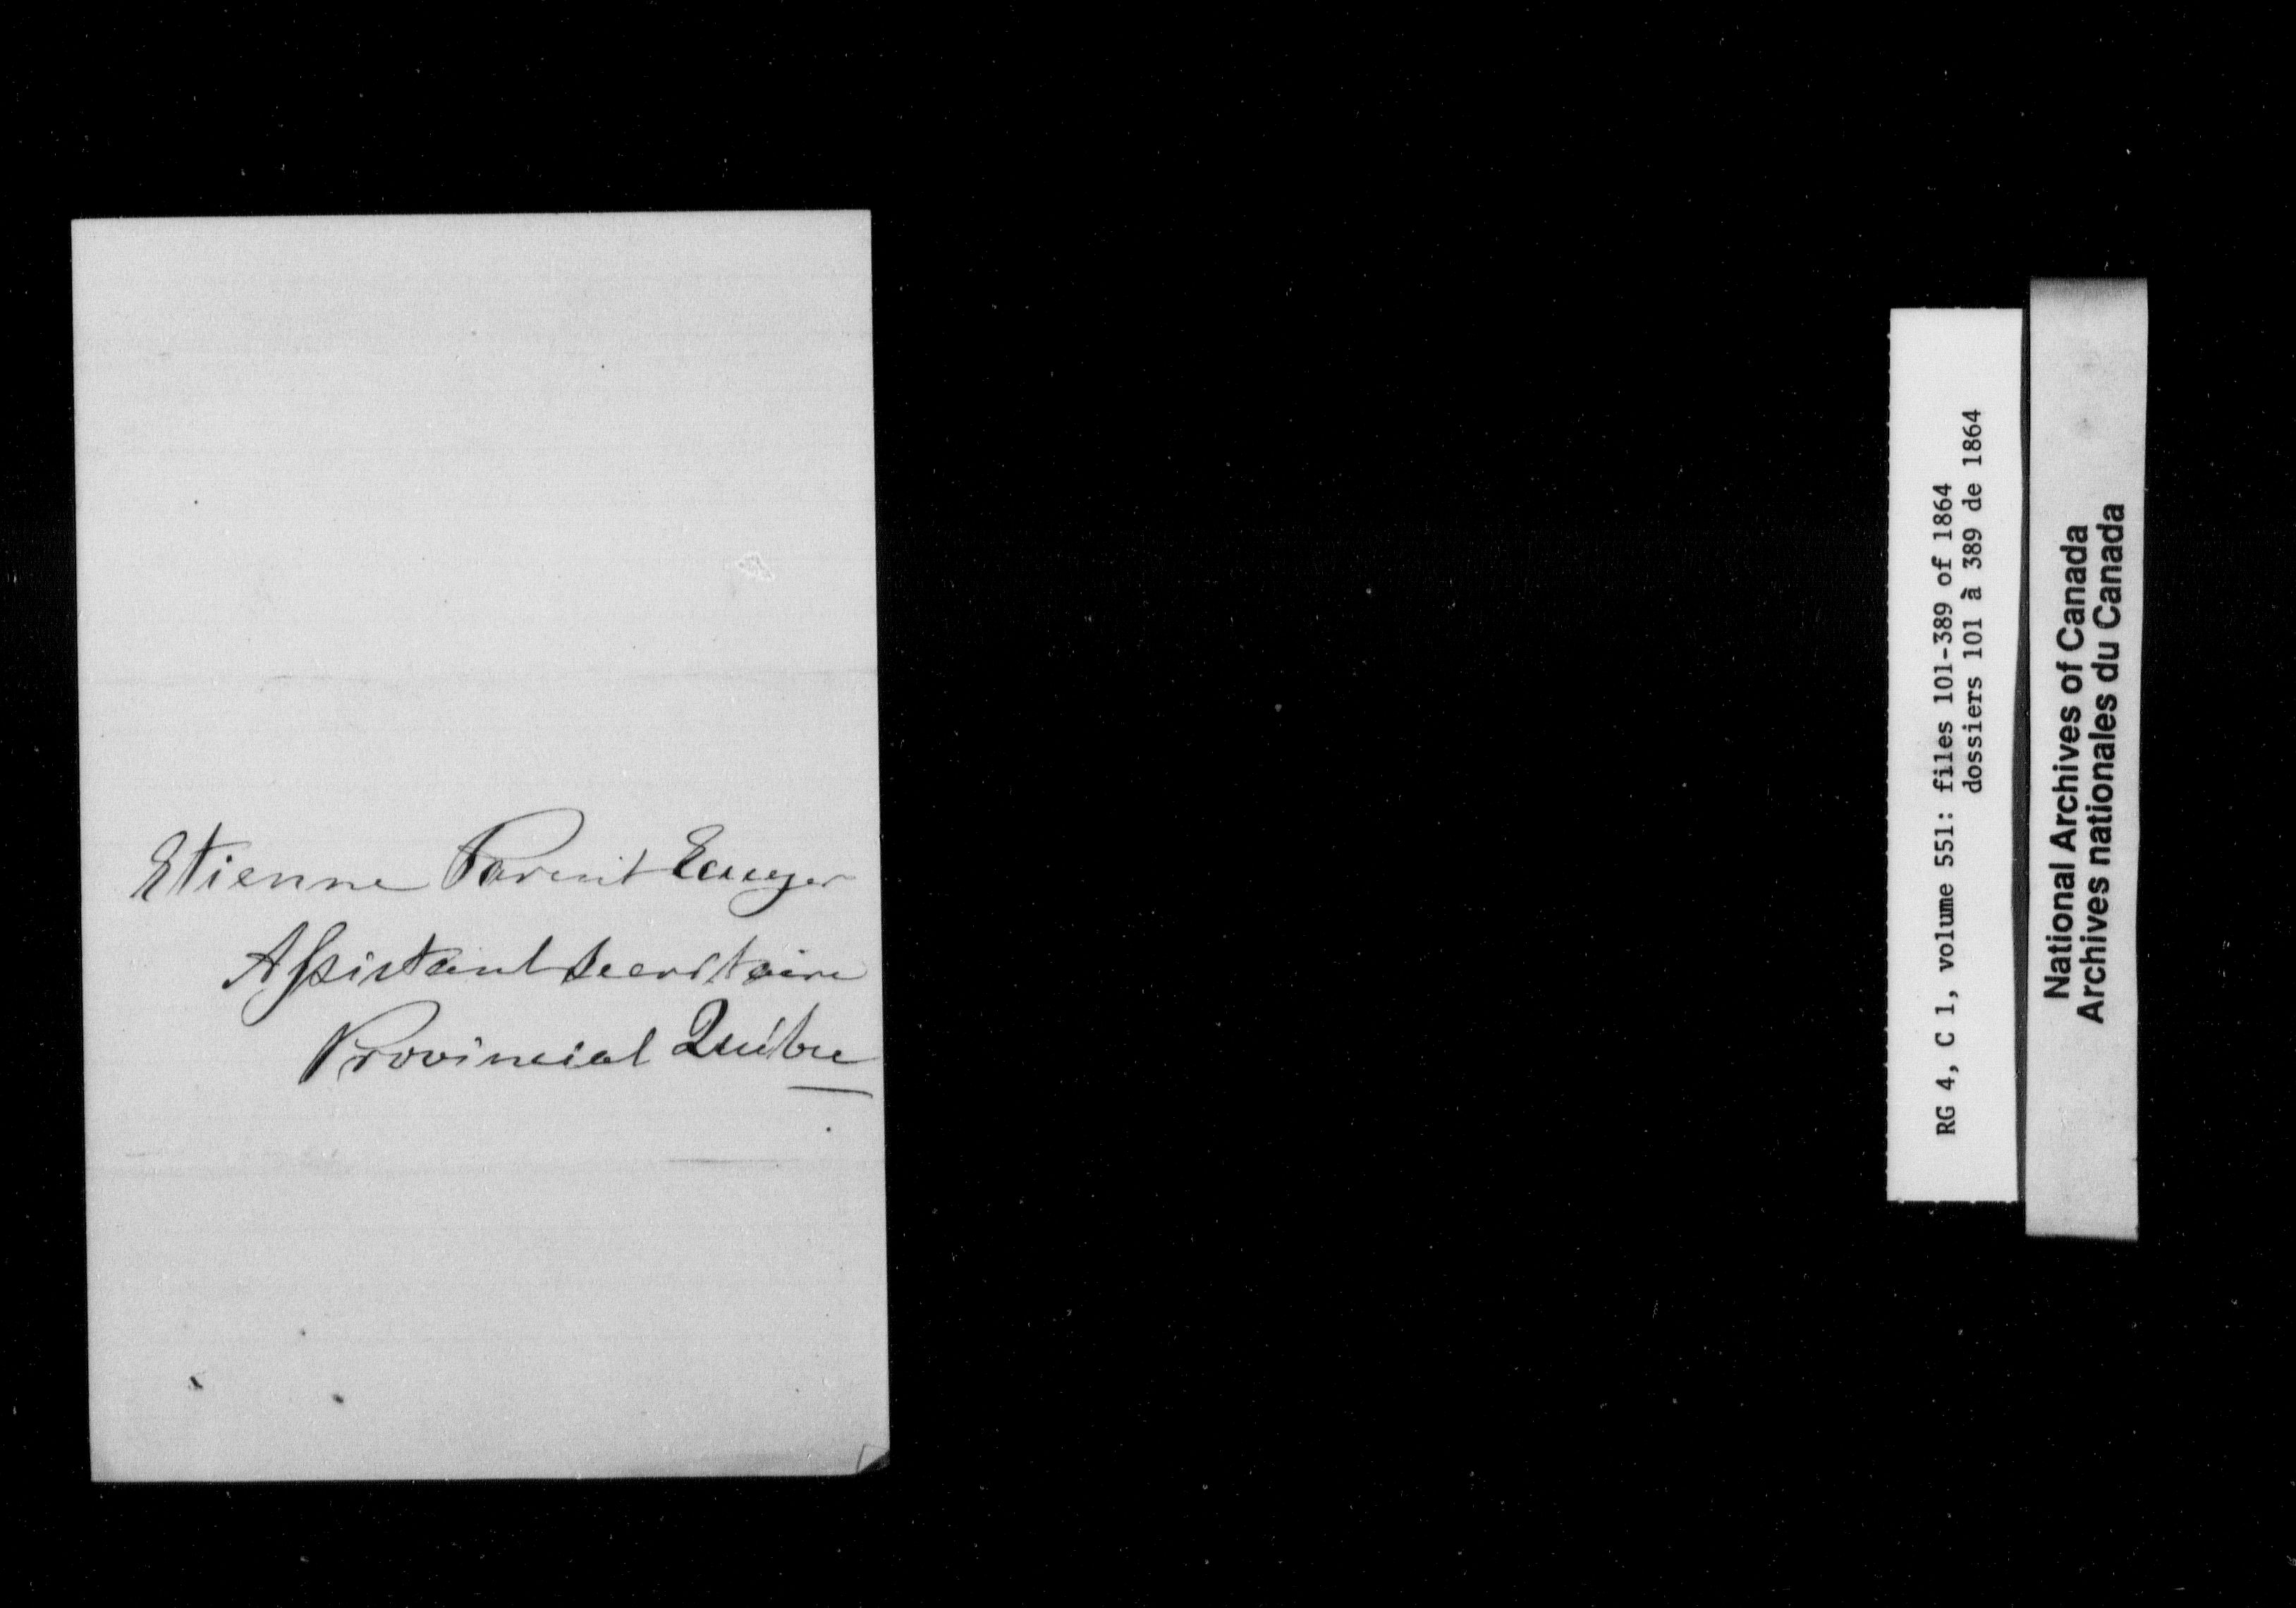 Etienne Parent Ecuyer
Assistant Secretaire
Provincial Québec
RG 4, C 1, volume 551: files 101-389 of 1864
dossiers 101 à 389 de 1864
National Archives of Canada
Archives nationales du Canada